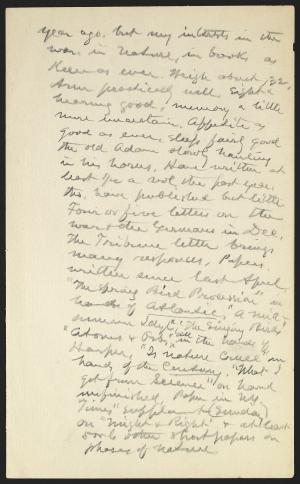 year ago. but my interests in the
war, in nature, in books as
keen as ever. Weigh about 132.
Arm practically well. Sight &
hearing good; memory a little
more uncertain. Appetite as
good as ever. Sleep fairly good
the old Adam slowly hauling
in his horns. Have written at
least the past year.
have published but little
Four or five letters on the
war & the Germans in Dec.
The Tribune letter brings
many responses. Papers
written since last April,
"The Spring Bird Procession" in
hands of Atlantic, "A mid-
summer Idyl", "The Singing Birds"
"Atoms & " all in the hands of
Harpers, "Is Nature Cruel" in
hands of the Century, "What I
got from Science" on hand
unfinished, Paper in N.Y.
Times supplement (Sunday)
on "Might & Right" & at least
5 or 6 other short papers on
phases of nature